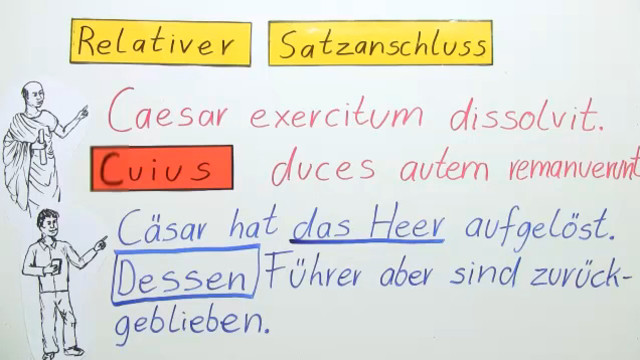 Relativer Satzanschluss
Caesar exercitum dissolvit.
Cuius duces autem remanuerunt
Cäsar hat das Heer aufgelöst.
Dessen Führer aber sind zurück-
geblieben.